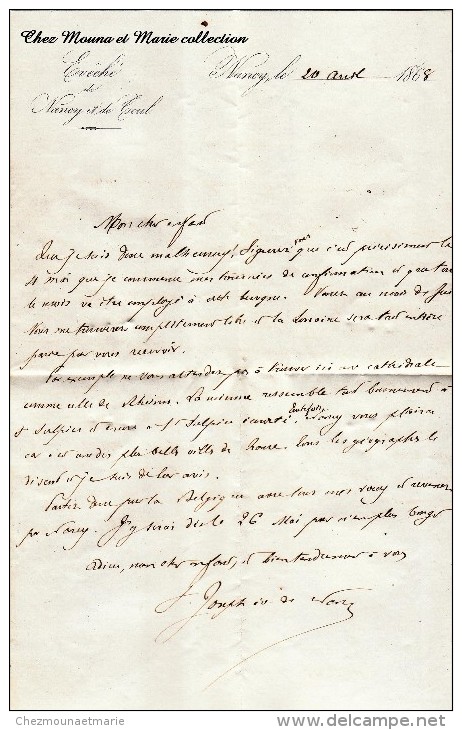 Chez Mouna et Marie collection
Evêché
de
Nancy et de Toul
Nancy, le 20 avril 1868
Mon cher enfant
Que je suis donc malheureux! Figurez vous que c'est précisément le
4 mai que je commence mes tournées de confirmation et que tout
le mois va être employé à cette besogne. Venez au mois de Juin
Vous me trouverez complètement libre et la Lorraine sera tout entière
parée pour vous recevoir.
Par exemple ne vous attendez pas à trouver ici une cathédrale
comme celle de Rheims. La mienne ressemble tout bonnement à
St Sulpice et encore à St Sulpice écourté. Toutefois, Nancy vous plaira
car c'est une des plus belles villes de France. Tous les géographes le
disent et je suis de leur avis.
Partez donc par la Belgique avec tous mes vœux et revenez
par Nancy. J'y serai dès le 26 Mai pour n'en plus bouger
Adieu, mon cher enfant, et bien tendrement à vous
Joseph év. de Nancy
Chezmounaetmarie
www.delcampe.net